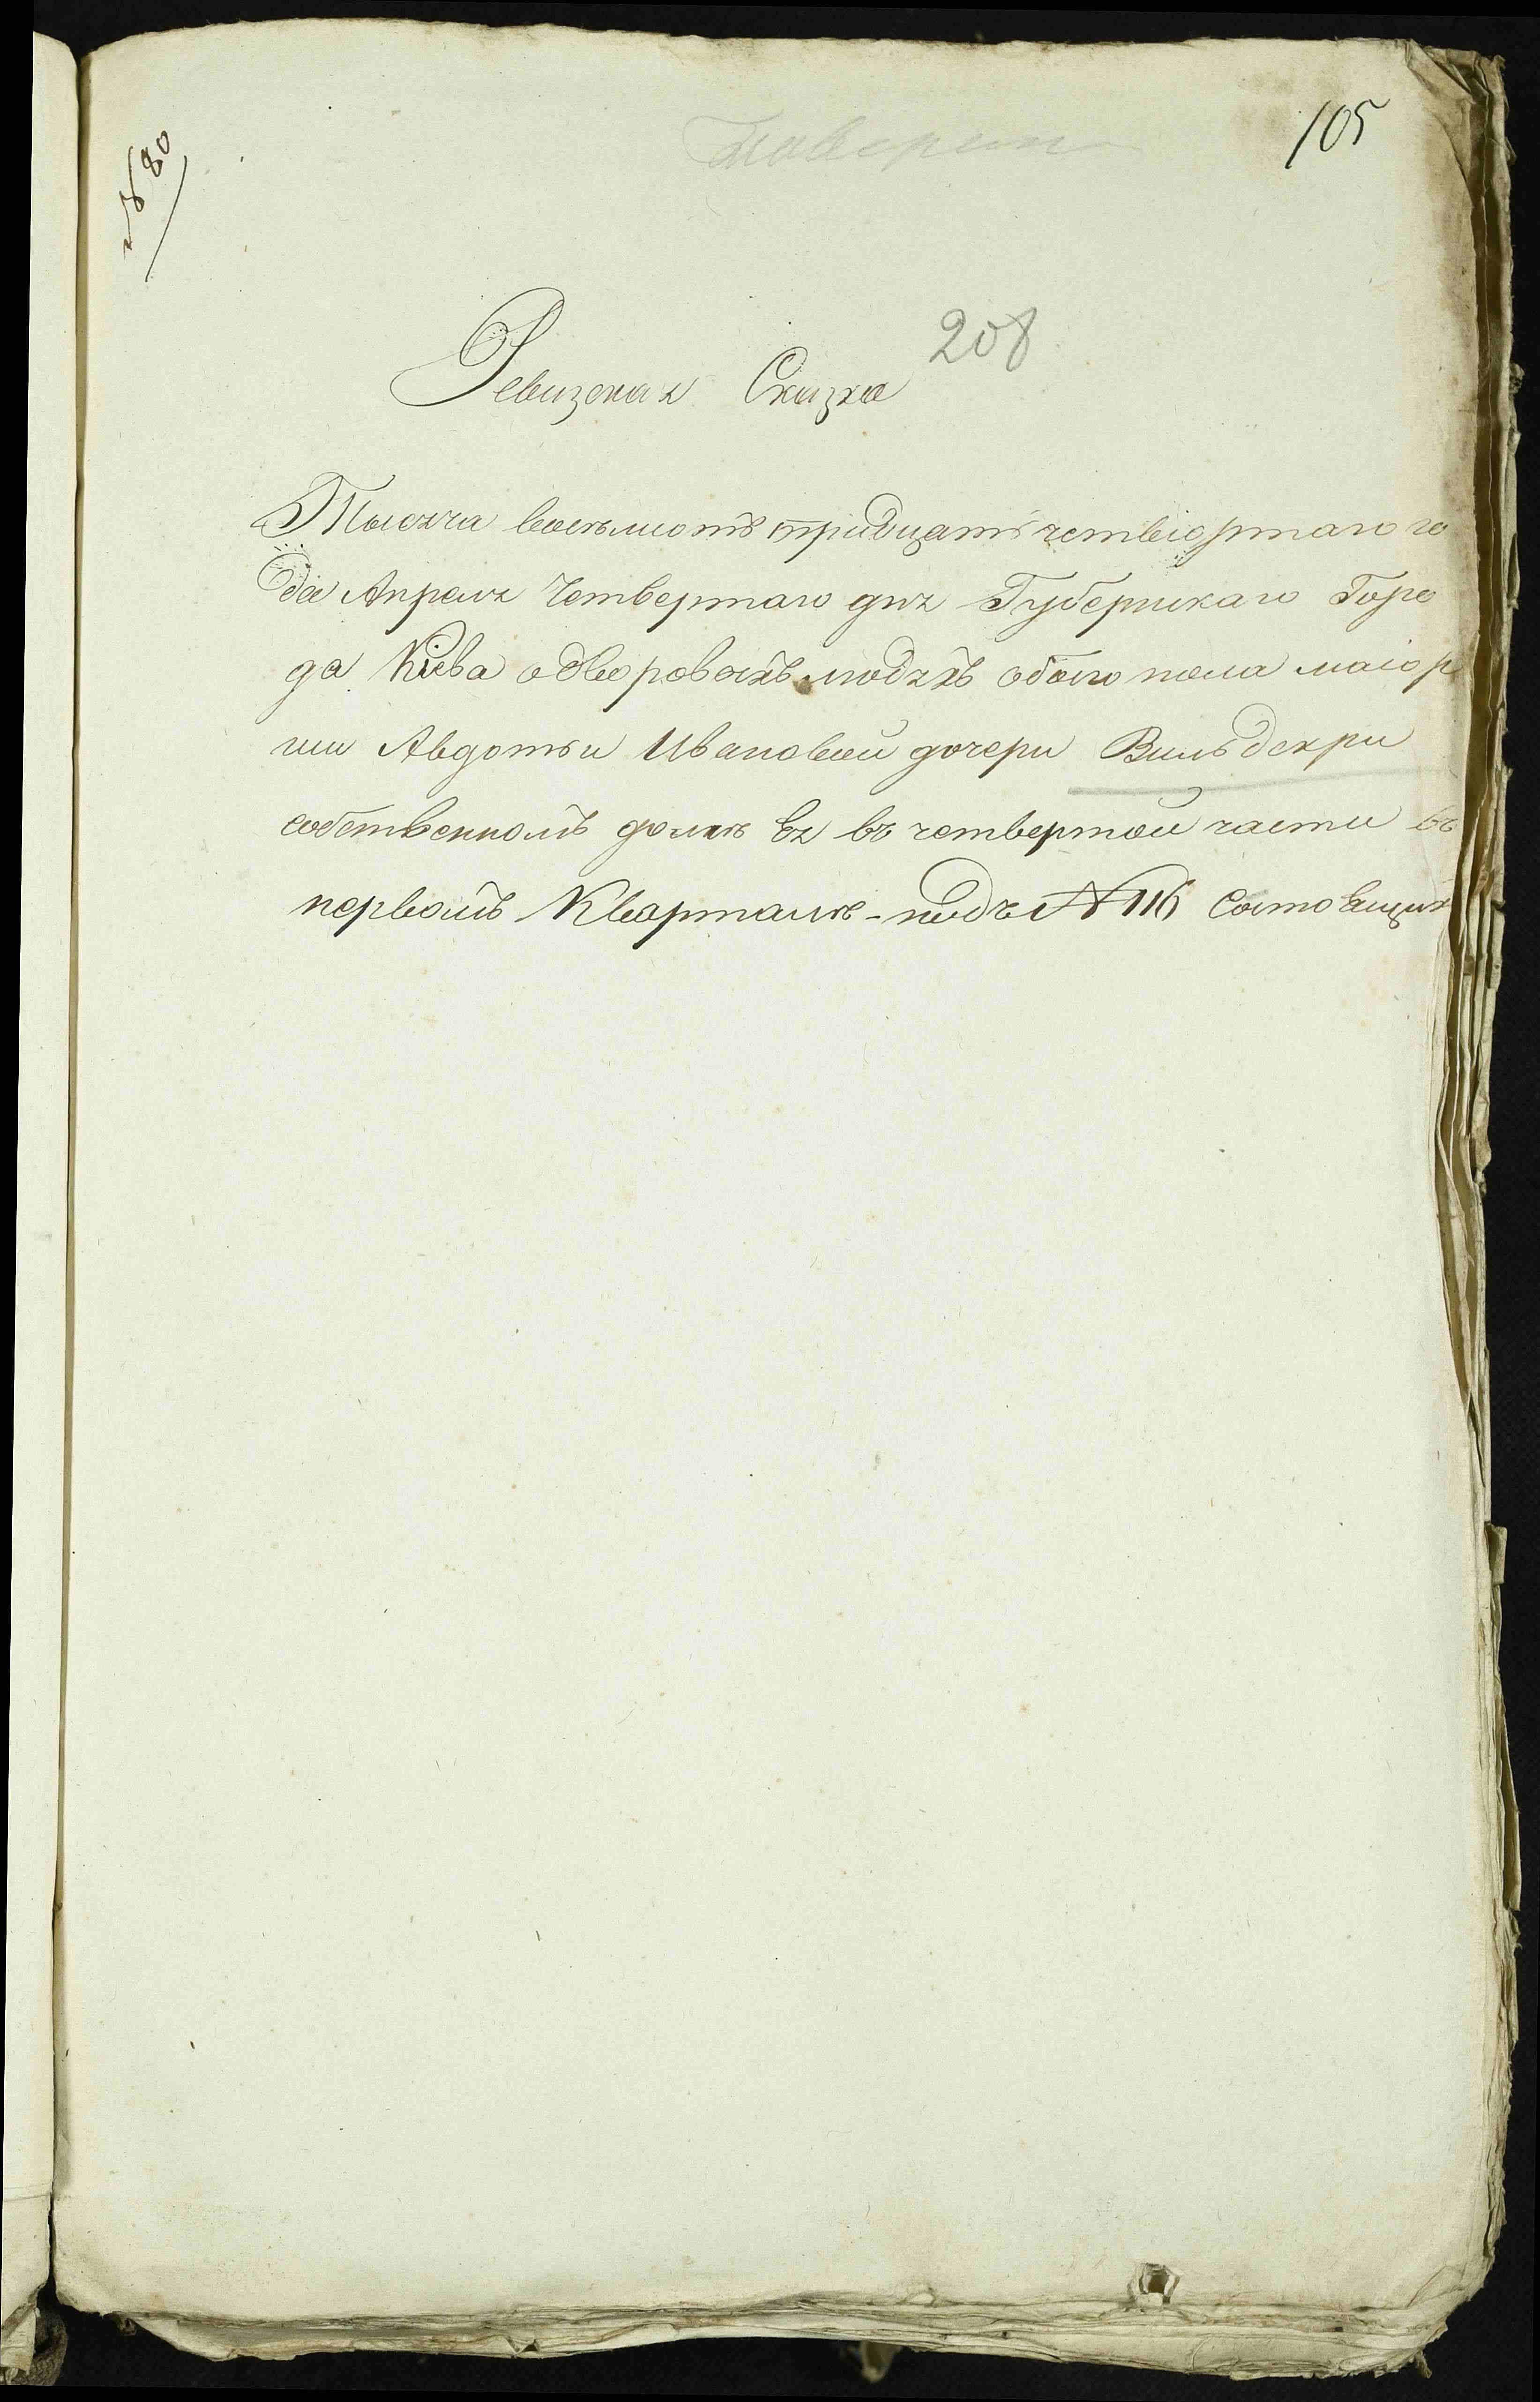 № 80
105
208
Ревизская Сказка
Тысяча восемьсотъ тридцать четвіортаго го
да Апреля Четвертаго дня Губернскаго Горо
да Кіева о дворовыхъ людяхъ обоего пола маіор
ши Авдотьи Ивановой дочери Вильдекри
собственномъ доме ея въ четвертой части въ
первомъ Квартале - подъ № 116 Состоящихъ